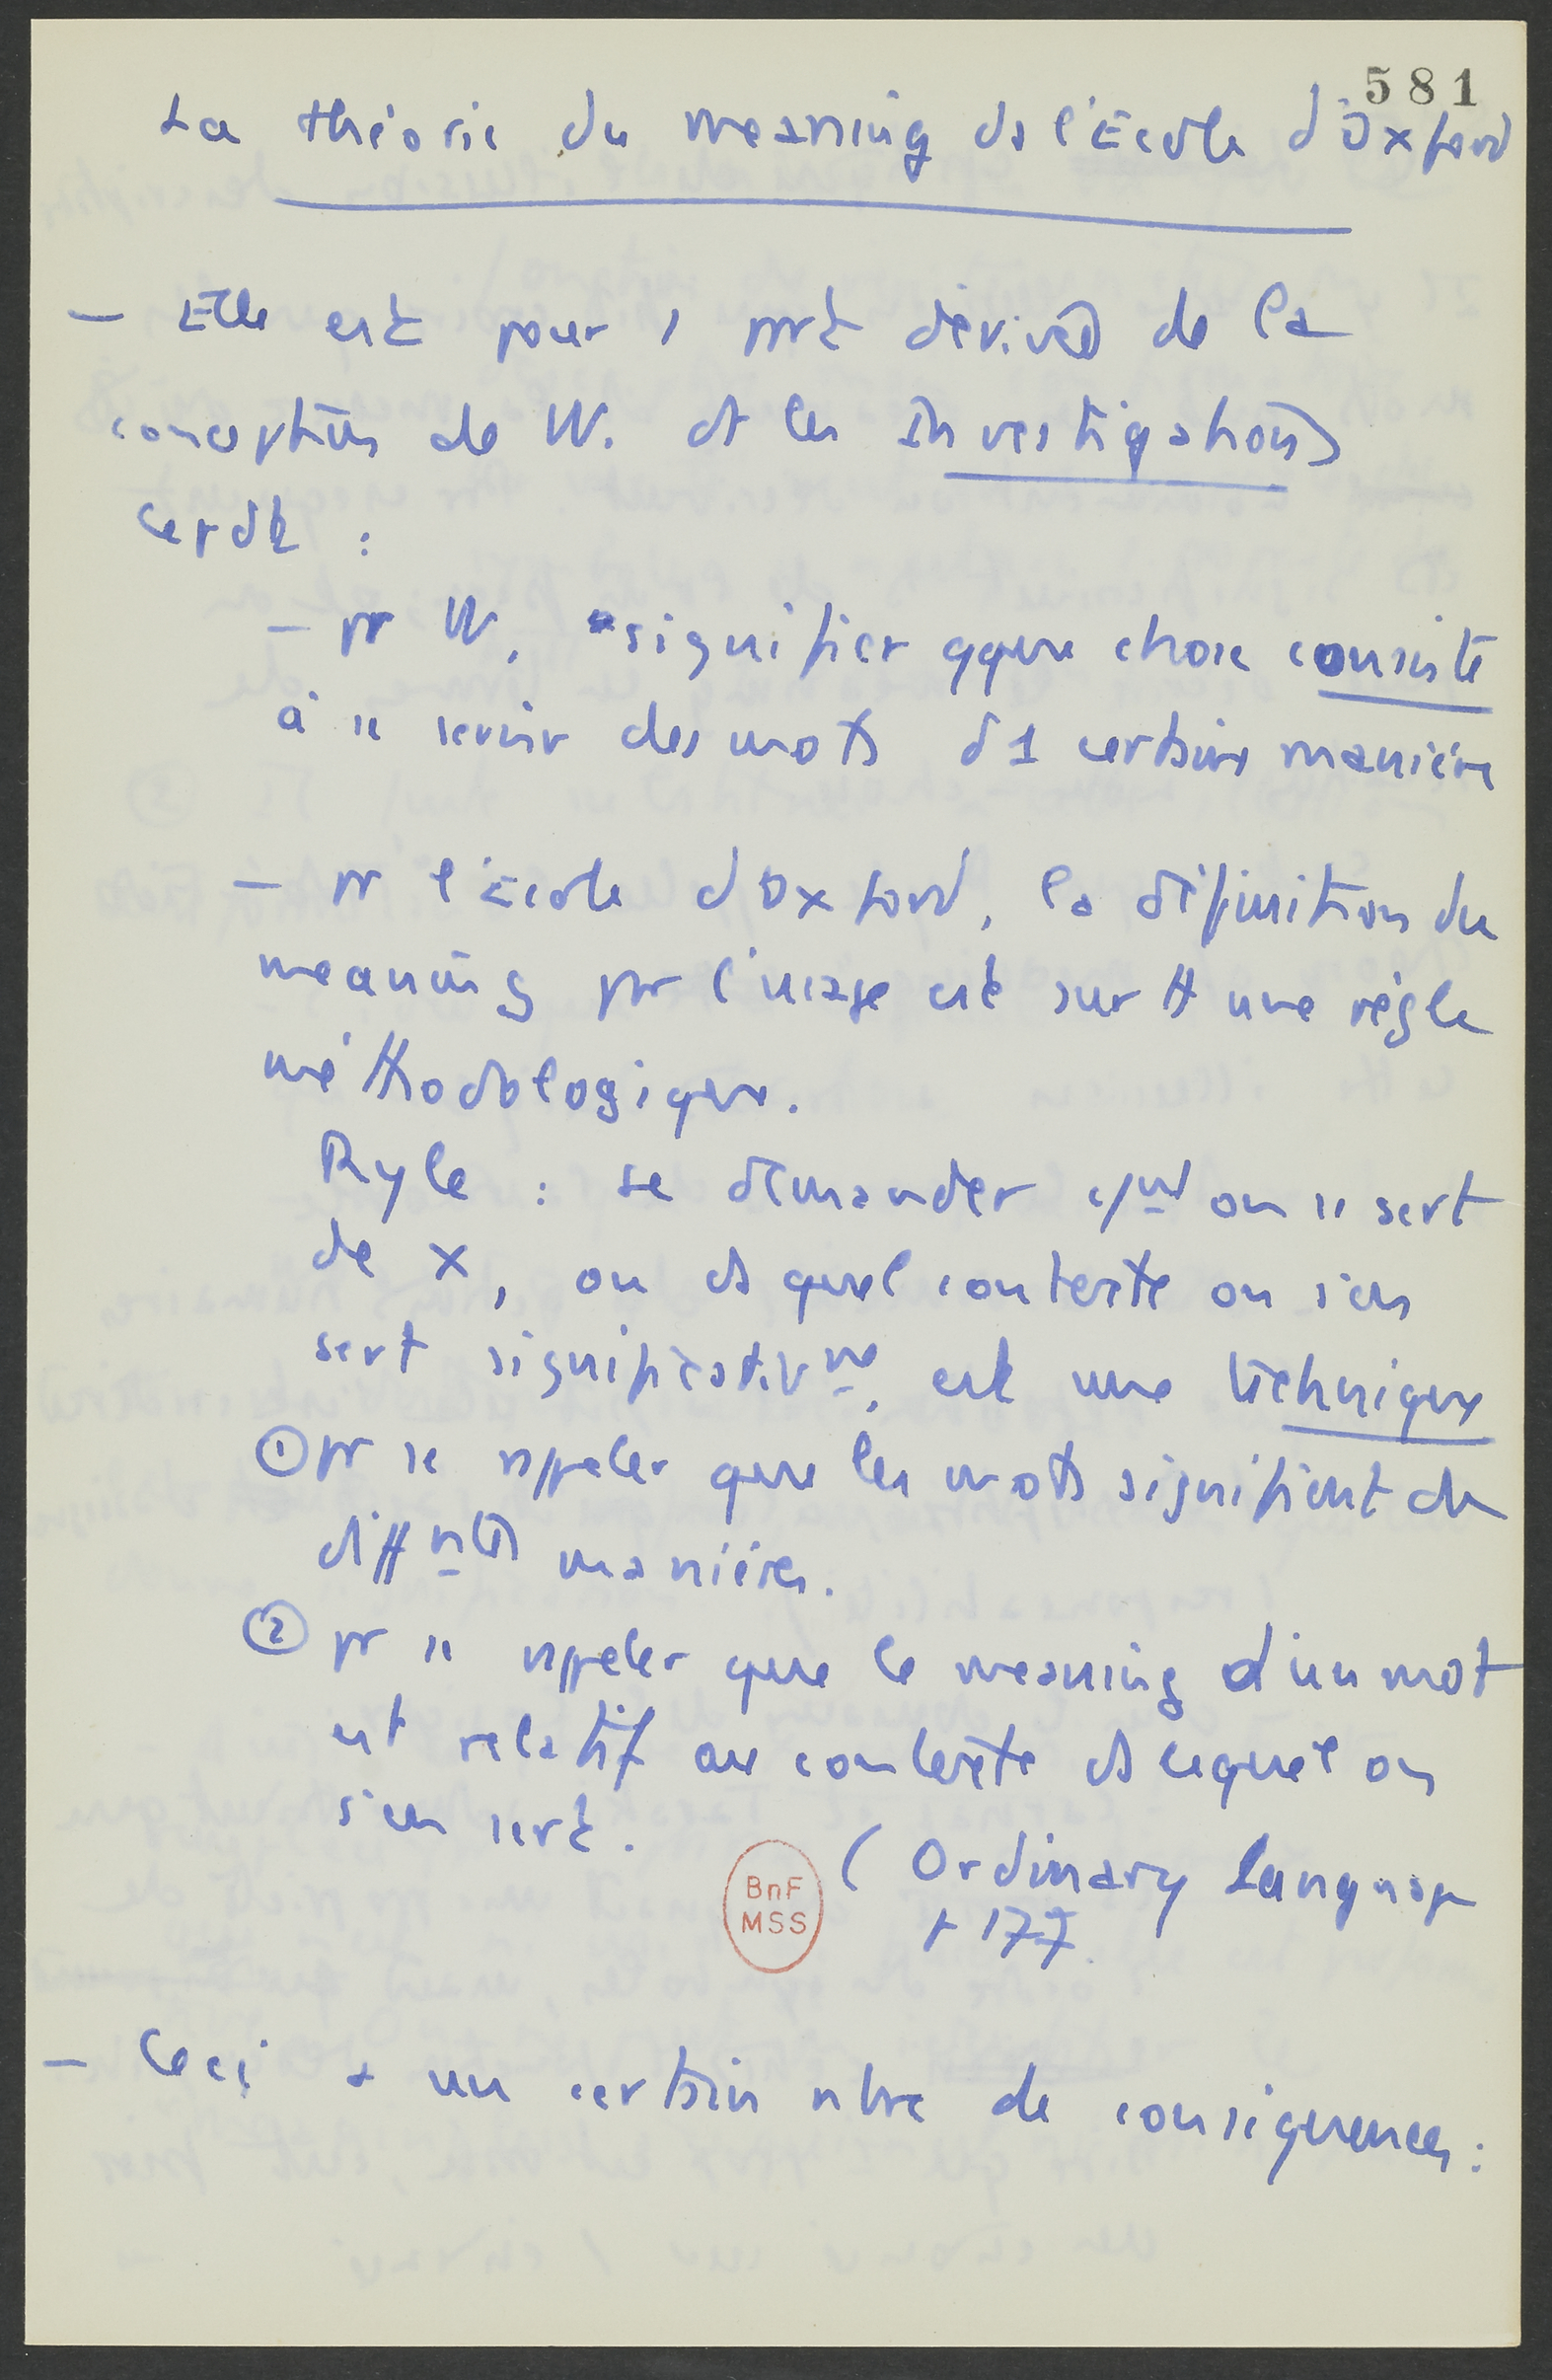 581
La théorie du meaning ds l'École d'Oxford
- Elle est pour 1 part dérivée de la
conception de W. ds les Investigations
Cepdt :
- pr W, signifier qque chose consiste
à se servir des mots d'1 certaine manière
- pr l'École d'Oxford, la définition du
meaning par l'usage est surtt une règle
méthodologique.
Ryle : se demander cmt on se sert
de X, ou ds quel contexte on s'en
sert significativmt, est une technique
① pr se rappeler que les mots signifient de
difftes manières.
② pr se rappeler que le meaning d'un mot
est relatif au contexte ds lequel on
s'en sert.
( Ordinary Language
p 177
BnF
MSS
- Ceci a un certain nbre de conséquences :